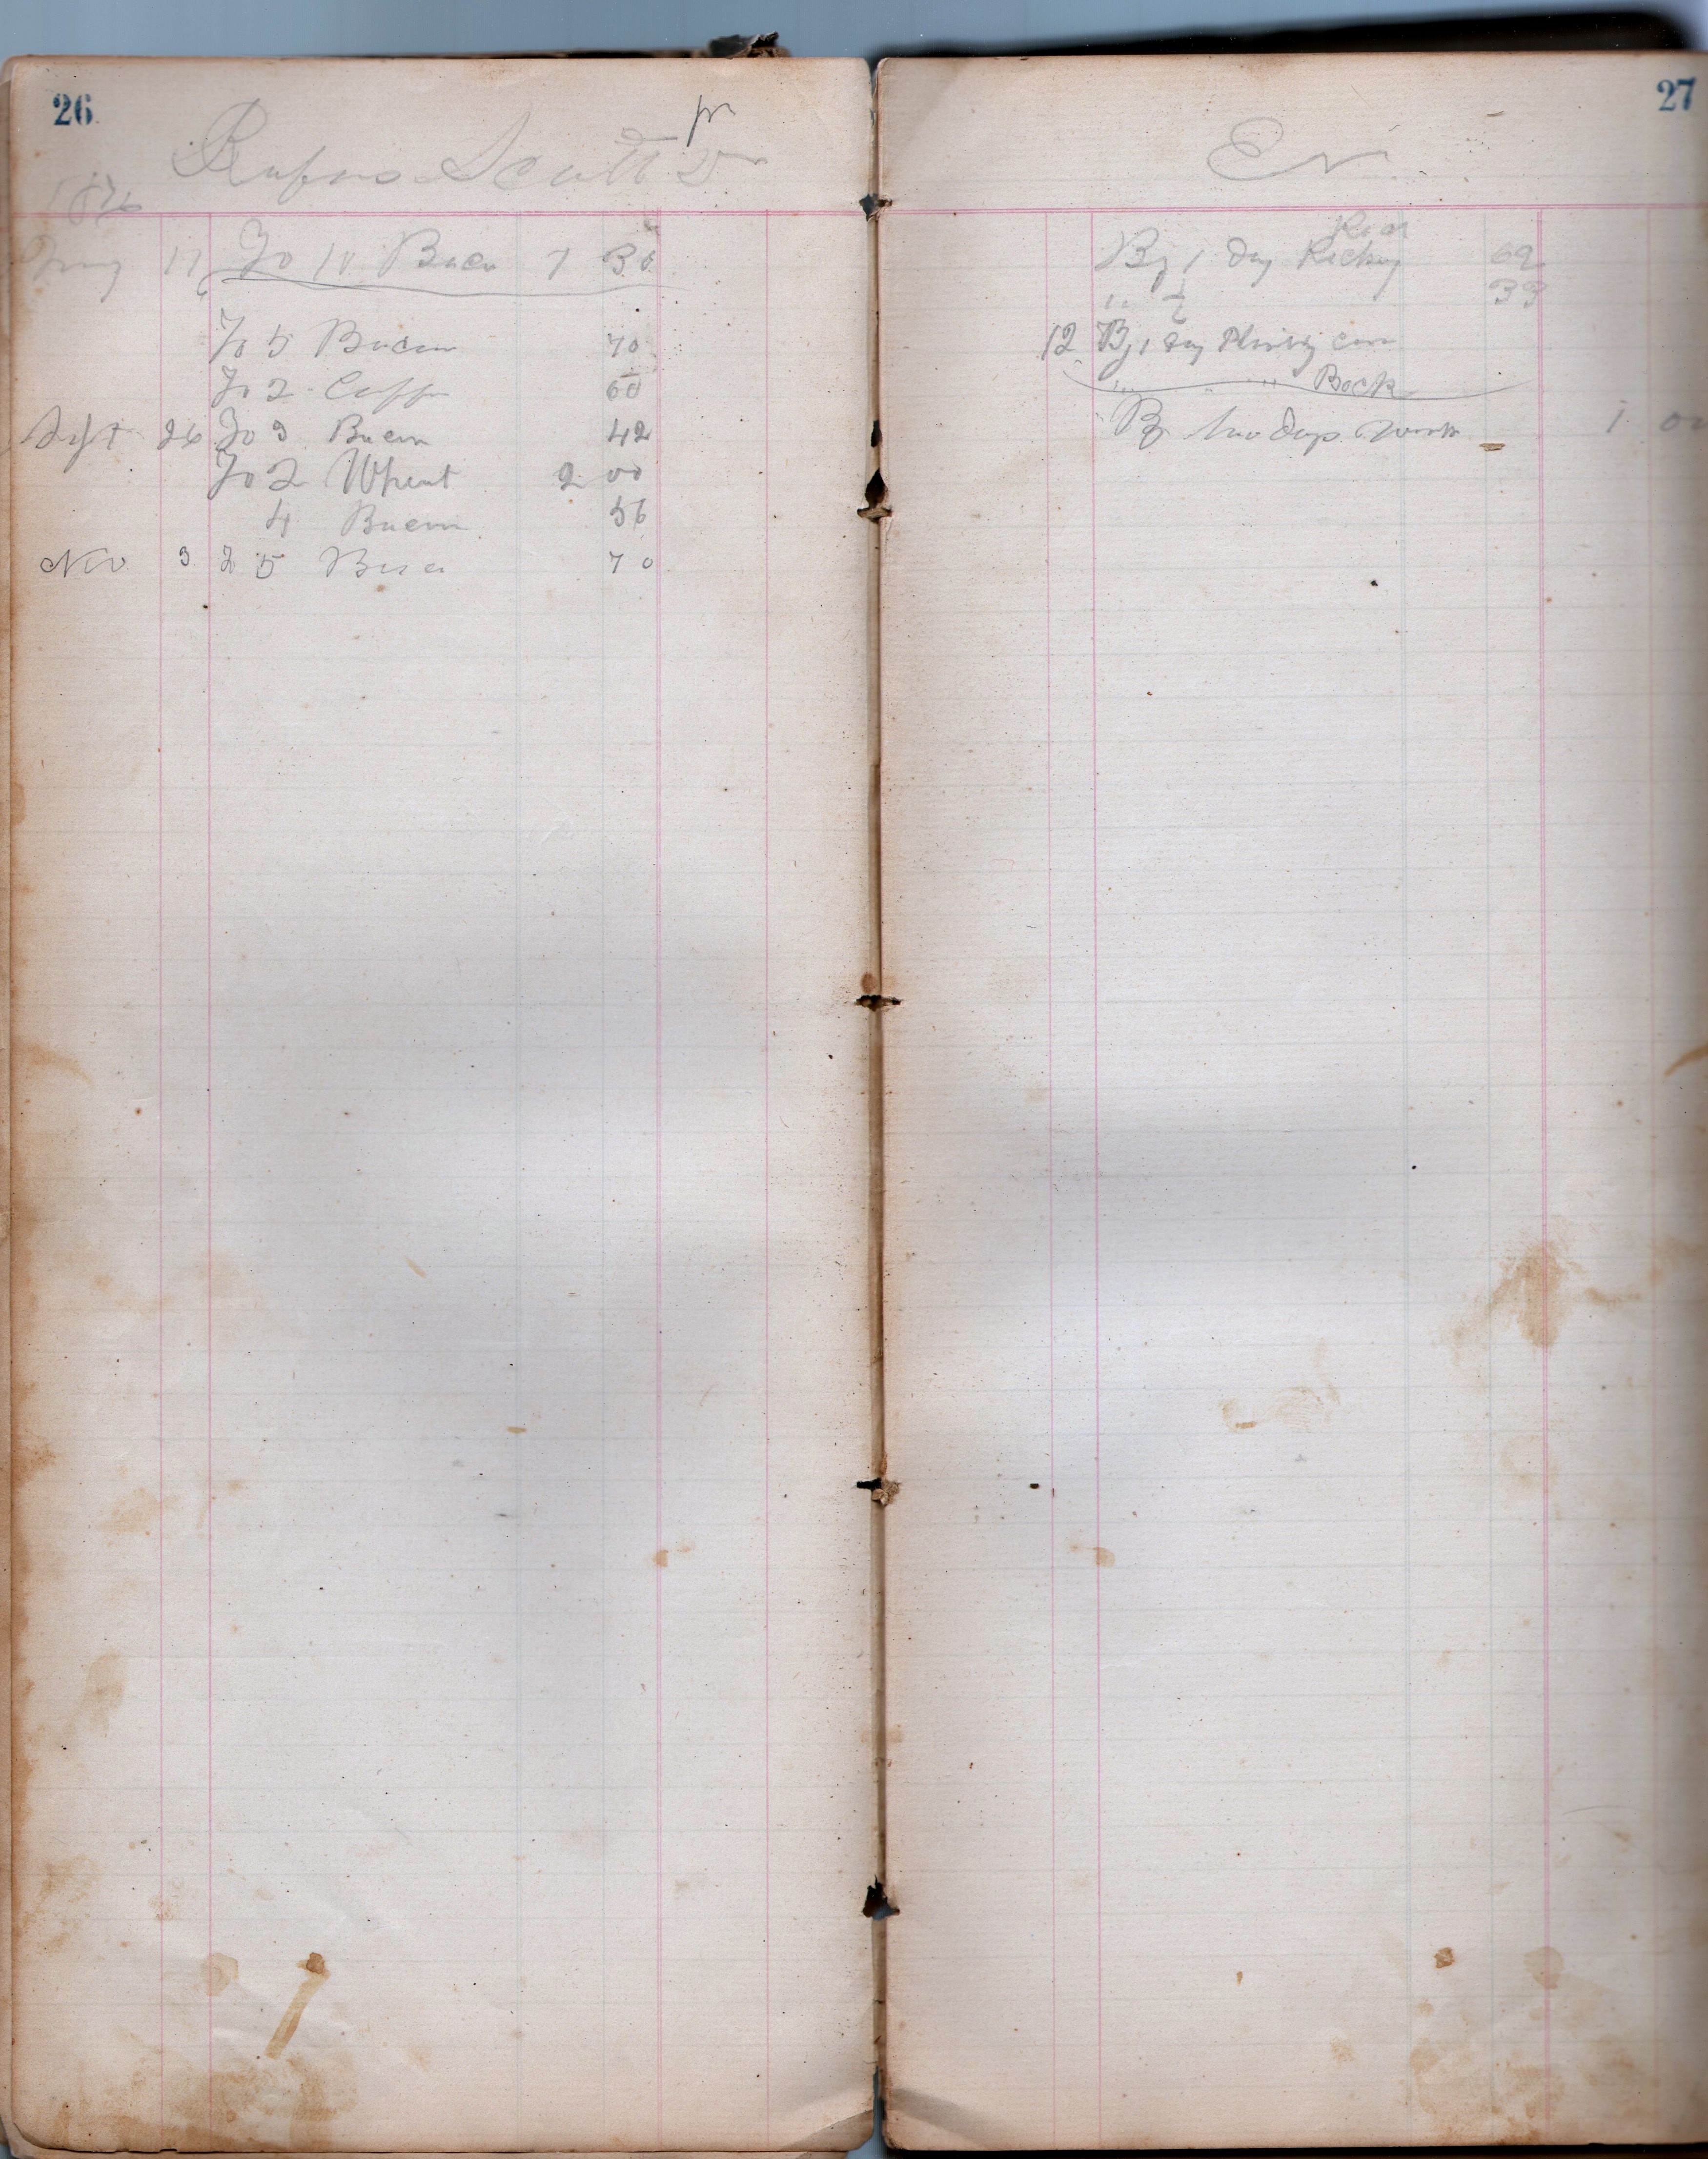 26
Rufus Scott Dr
11 To 10 Bacn 1 30
To 5 Bacon 70
To 2 Coffe 60
Sept 26 To 3 Bacon 42
To 2 Wheat 2 00
4 Bacon 56
Nov 3 To 5 Bacn 70
27
By 1 Day 62
" 1/2 33
12 By 1 Day corn
" " " Back
By two days work 1 00